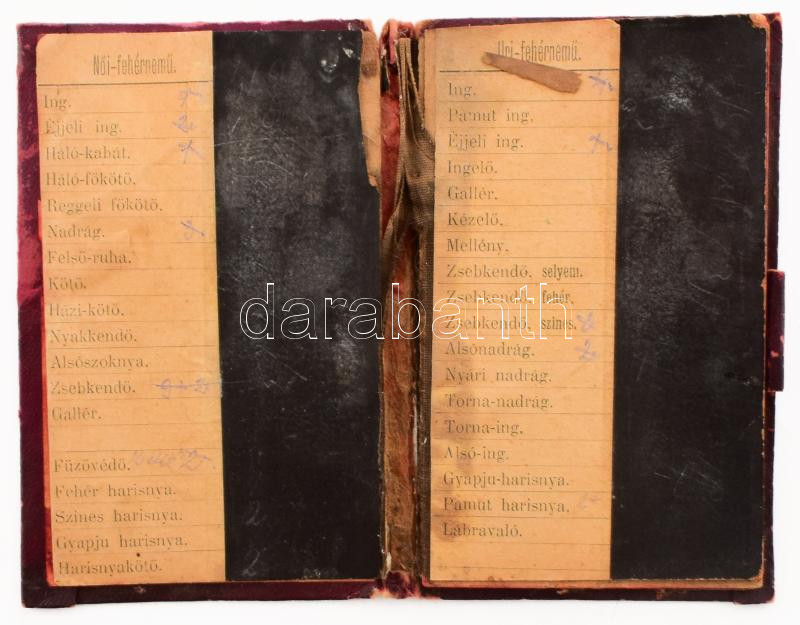 Női-fehérnemű.
Ing.
Éjjeli ing.
Háló-kabát.
Háló-főkötő.
Reggeli főkötő.
Nadrág.
Felső-ruha.
Kötő.
Házi-kötő.
Nyakkendő.
Alsószoknya.
Zsebkendő.
Gallér.
Fűzővédő.
Fehér harisnya.
Szines harisnya.
Gyapju harisnya.
Harisnyakötő.
Uri-fehérnemű.
Ing.
Pamut ing.
Éjjeli ing.
Ingelő.
Gallér.
Kézelő.
Mellény.
Zsebkendő, selyem.
Zsebkendő, fehér.
Zsebkendő, szines.
Alsónadrág.
Nyári nadrág.
Torna-nadrág.
Torna-ing.
Alsó-ing.
Gyapju-harisnya.
Pamut harisnya.
Lábravaló.
darabanth